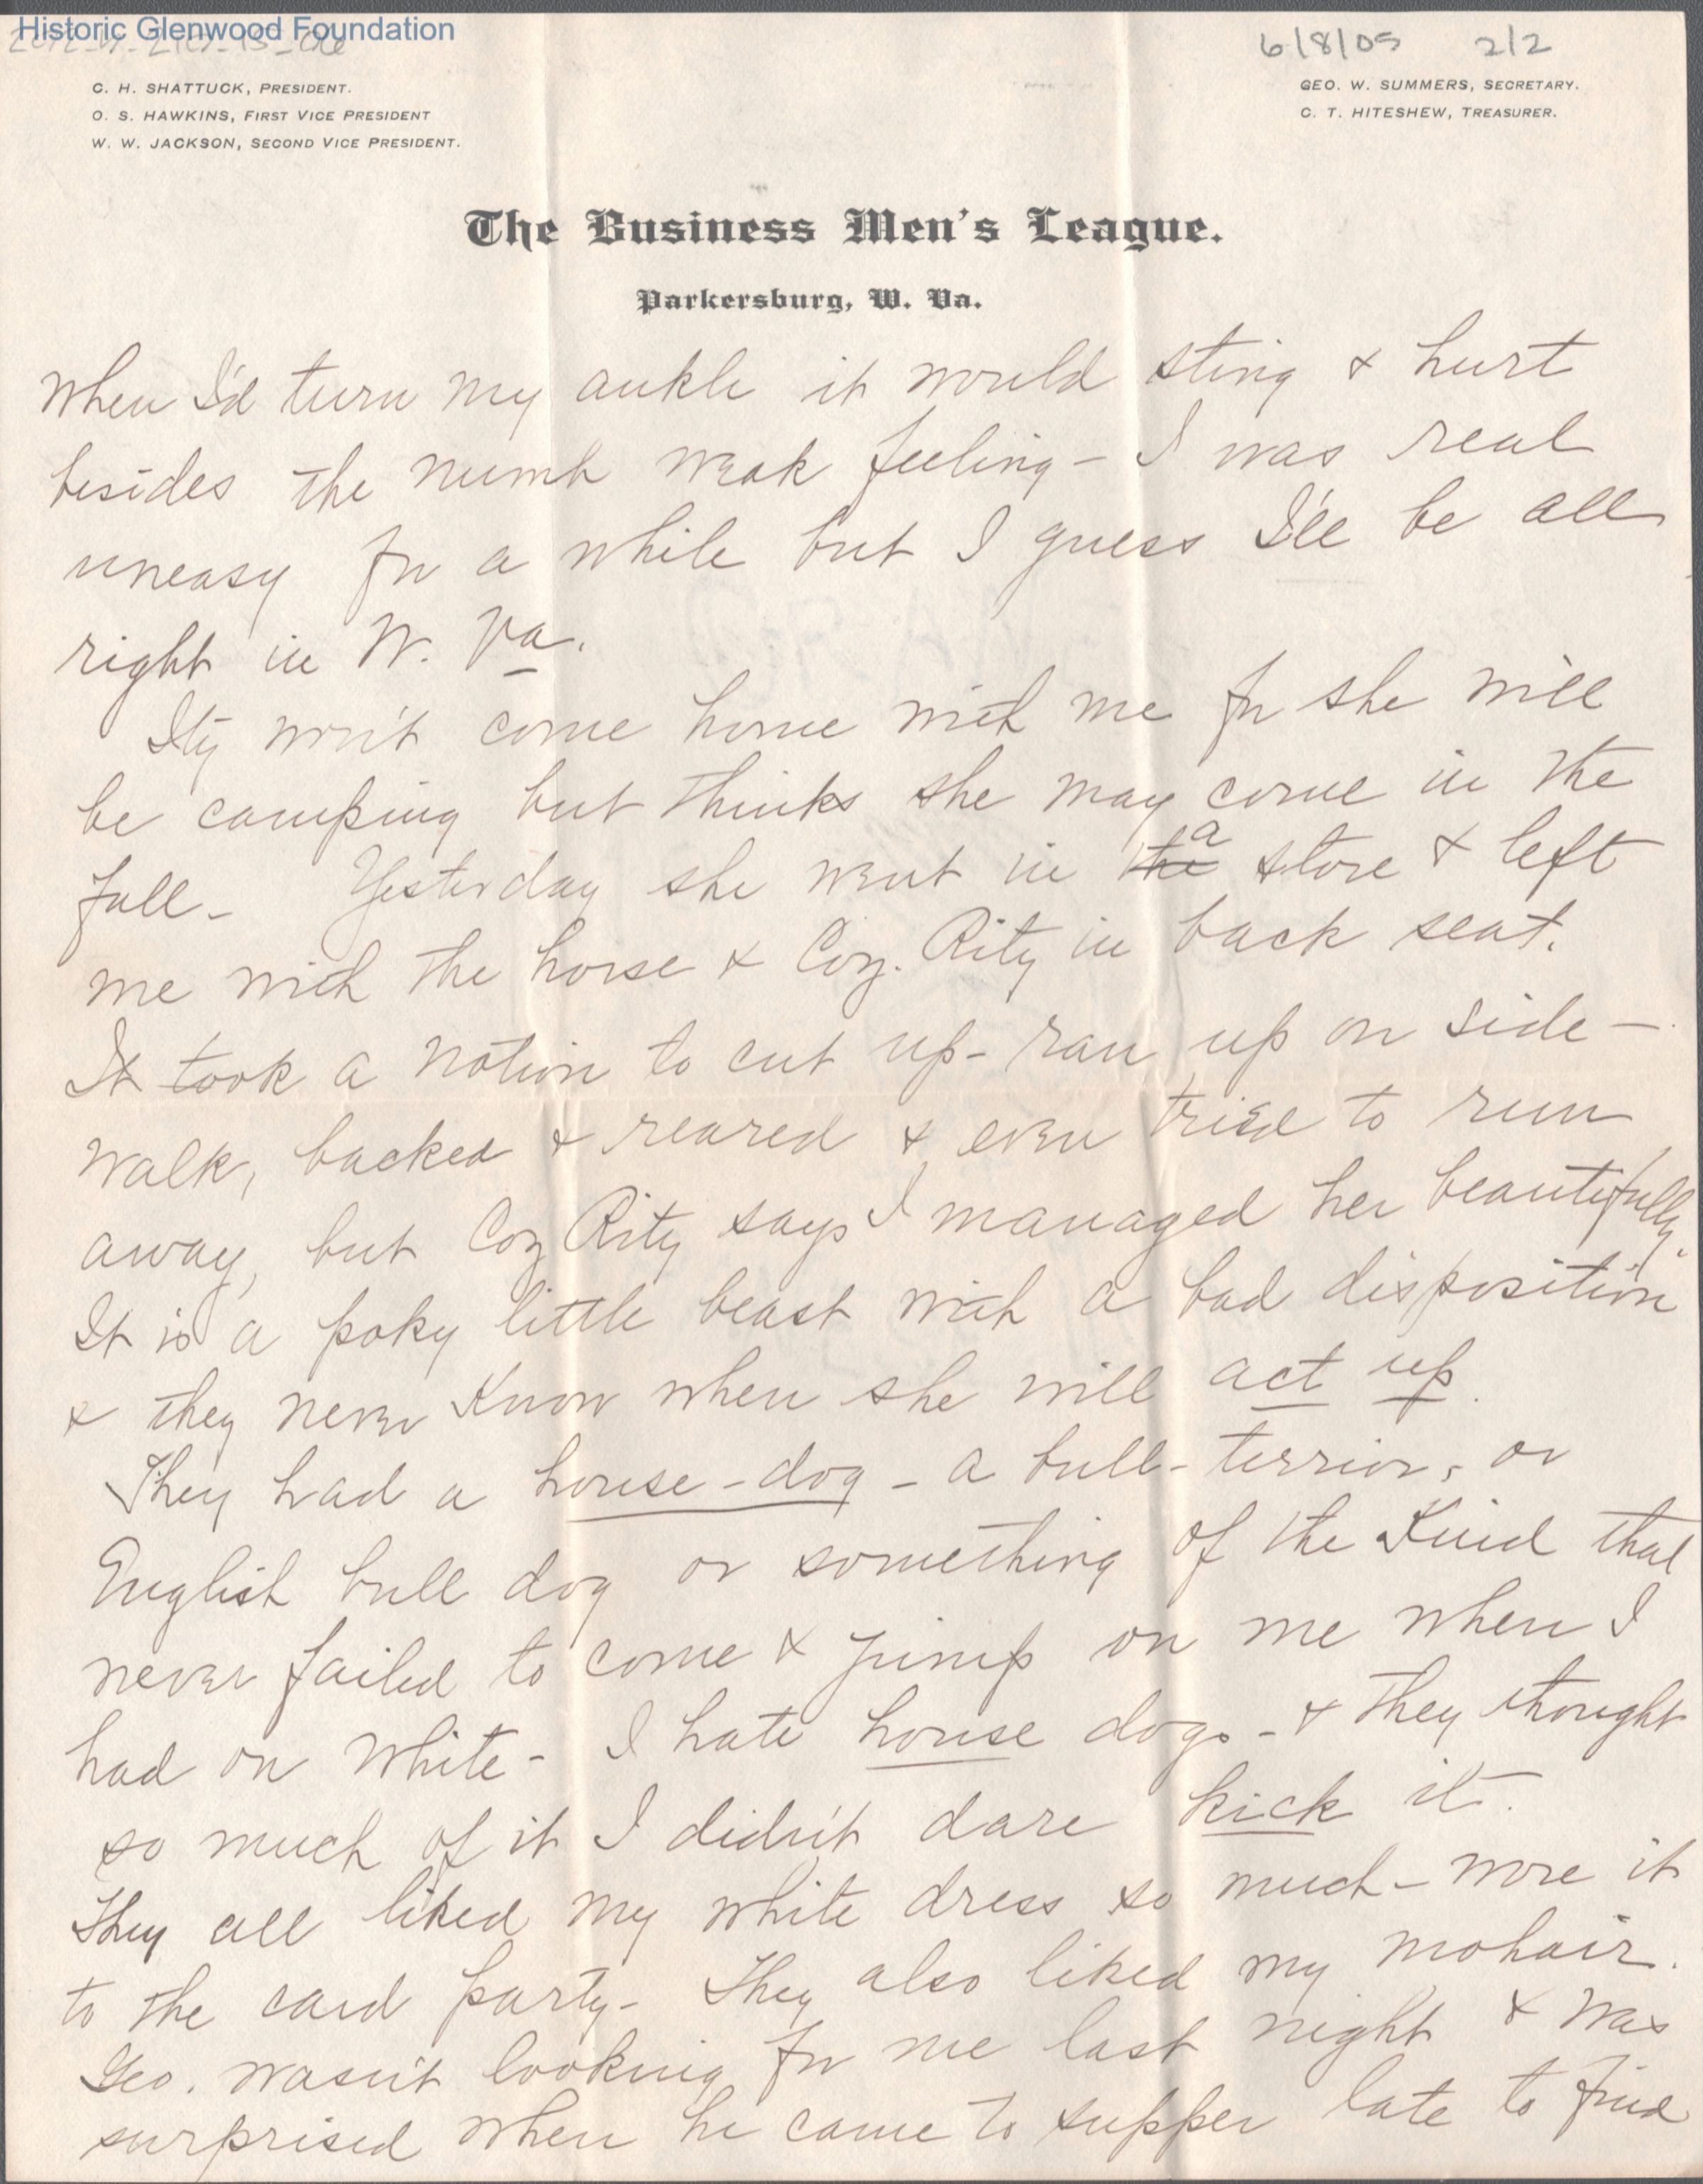 Historic Glenwood Foundation
6/8/05 2/2
C. H. SHATTUCK, PRESIDENT.
O. S. HAWKINS, FIRST VICE PRESIDENT
W. W. JACKSON, SECOND VICE PRESIDENT.
GEO. W. SUMMERS, SECRETARY.
C. T. HITESHEW, TREASURER.
The Business Men's League.
Parkersburg, W. Va.
When I'd turn my ankle it would sting & hurt
besides the numb weak feeling - I was real
uneasy for a while but I guess I'll be all
right in W. Va.
Ity won't come home with me for she will
be camping but thinks she may come in the
fall - Yesterday she went in the a store & left
me with the horse & Coz. Rity in back seat.
It took a notion to cut up - ran up on side -
walk, backed & reared & even tried to run
away, but Coz Rity says I managed her beautifully.
It is a poky little beast with a bad disposition
& they never know when she will act up.
They had a house-dog - a bull-terrior, or
English bull dog or something of the kind that
never failed to come & jump on me when I
had on white - I hate house dogs - & they thought
so much of it I didn't dare kick it.
They all liked my white dress so much - wore it
to the card party - They also liked my mohair.
Geo. wasn't looking for me last night & was
surprised when he came to supper late to find